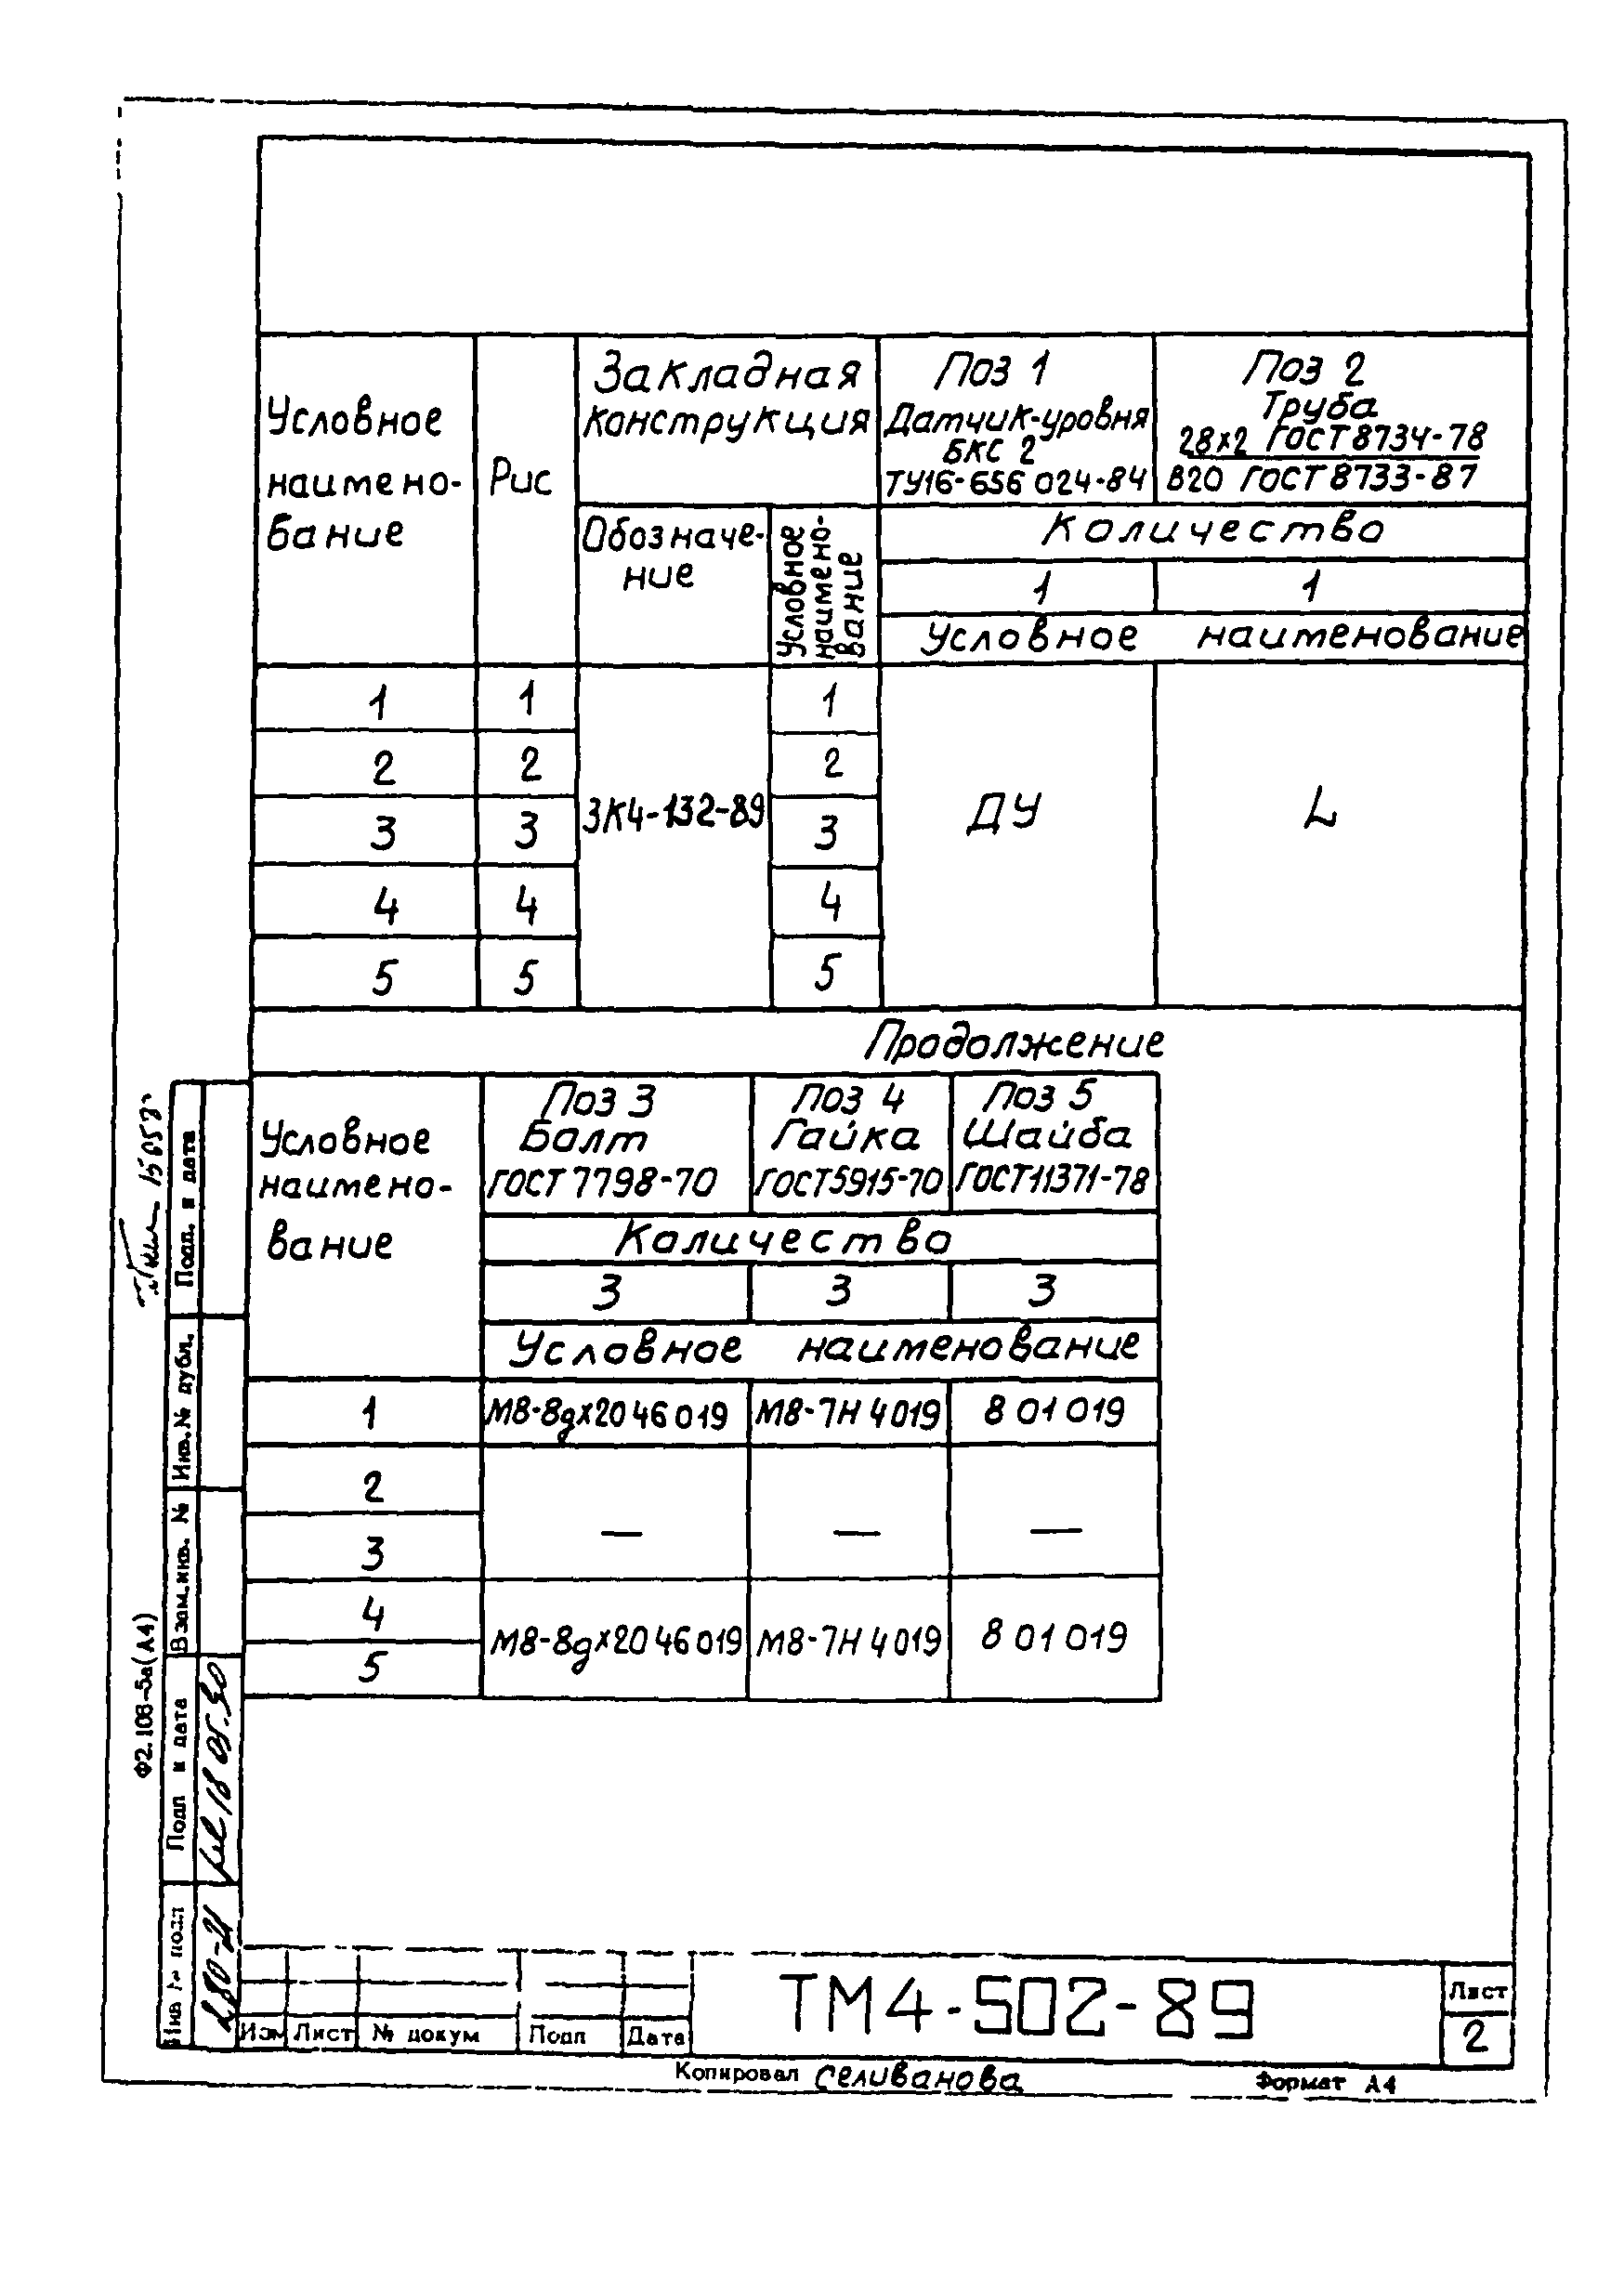 Условное
наимено-
вание
Рис
Закладная
конструкция
Обозначе-
ние
Условное
наимено-
вание
Поз 1
Датчик-уровня
БКС 2
ТУ16-656 024-84
Поз 2
Труба
28х2 ГОСТ 8734-78
В20 ГОСТ 8733-87
Количество
1 1
Условное наименование
1 1 1
2 2 2
3 3 ЗК4-132-89 3 ДУ L
4 4 4
5 5 5
Продолжение
Условное
наимено-
вание
Поз 3
Балт
ГОСТ 7798-70
Поз 4
Гайка
ГОСТ5915-70
Поз 5
Шайба
ГОСТ11371-78
Количество
3 3 3
Условное наименование
1 М8-8gх20 46 019 М8-7Н 4 019 8 01 019
2
3 — — —
4
5 М8-8gх20 46 019 М8-7Н 4 019 8 01 019
Подп. и дата
Инв. № дубл.
Взам. инв. №
Подп и дата
18 05.90
Инв № подл
Ф2.108-5а(А4)
Изм Лист № докум Подп Дата
ТМ4-502-89
Лист
2
Копировал Селиванова
Формат А4